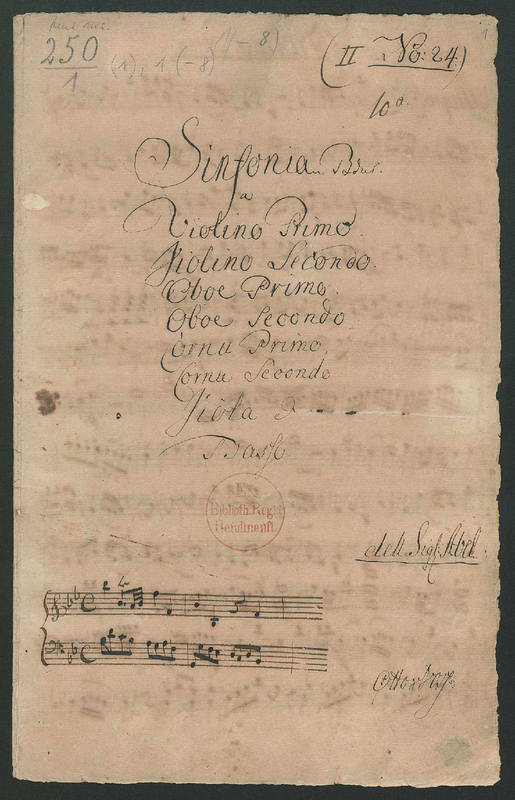 250
1
(1), 1 (-8)
(1-8)
(II No: 24.)
10
Sinfonia
a
Violino Primo.
Violino Secondo.
Oboe Primo.
Oboe Secondo
Cornu Primo
Cornu Secondo
Viola
Basso.
Ex
Biblioth. Regia
Berolinensi.
dell Sigl. Abel.